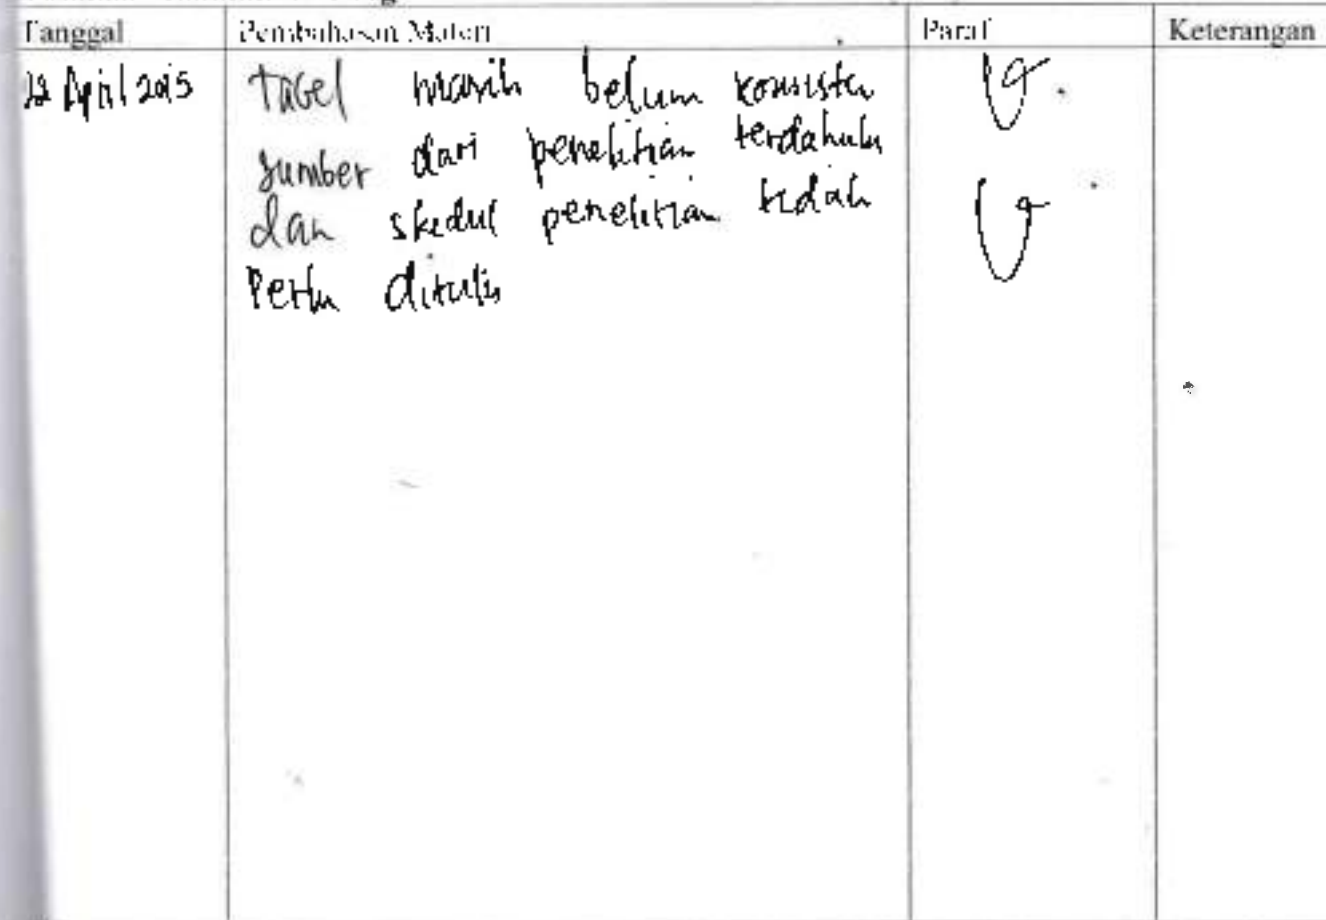 Tanggal Pembahasan Materi Paraf Keterangan
22 April 2015 Tabel masih belum konsisten
sumber dari penelitian terdahulu
dan skedul penelitian tidak
Perlu ditulis